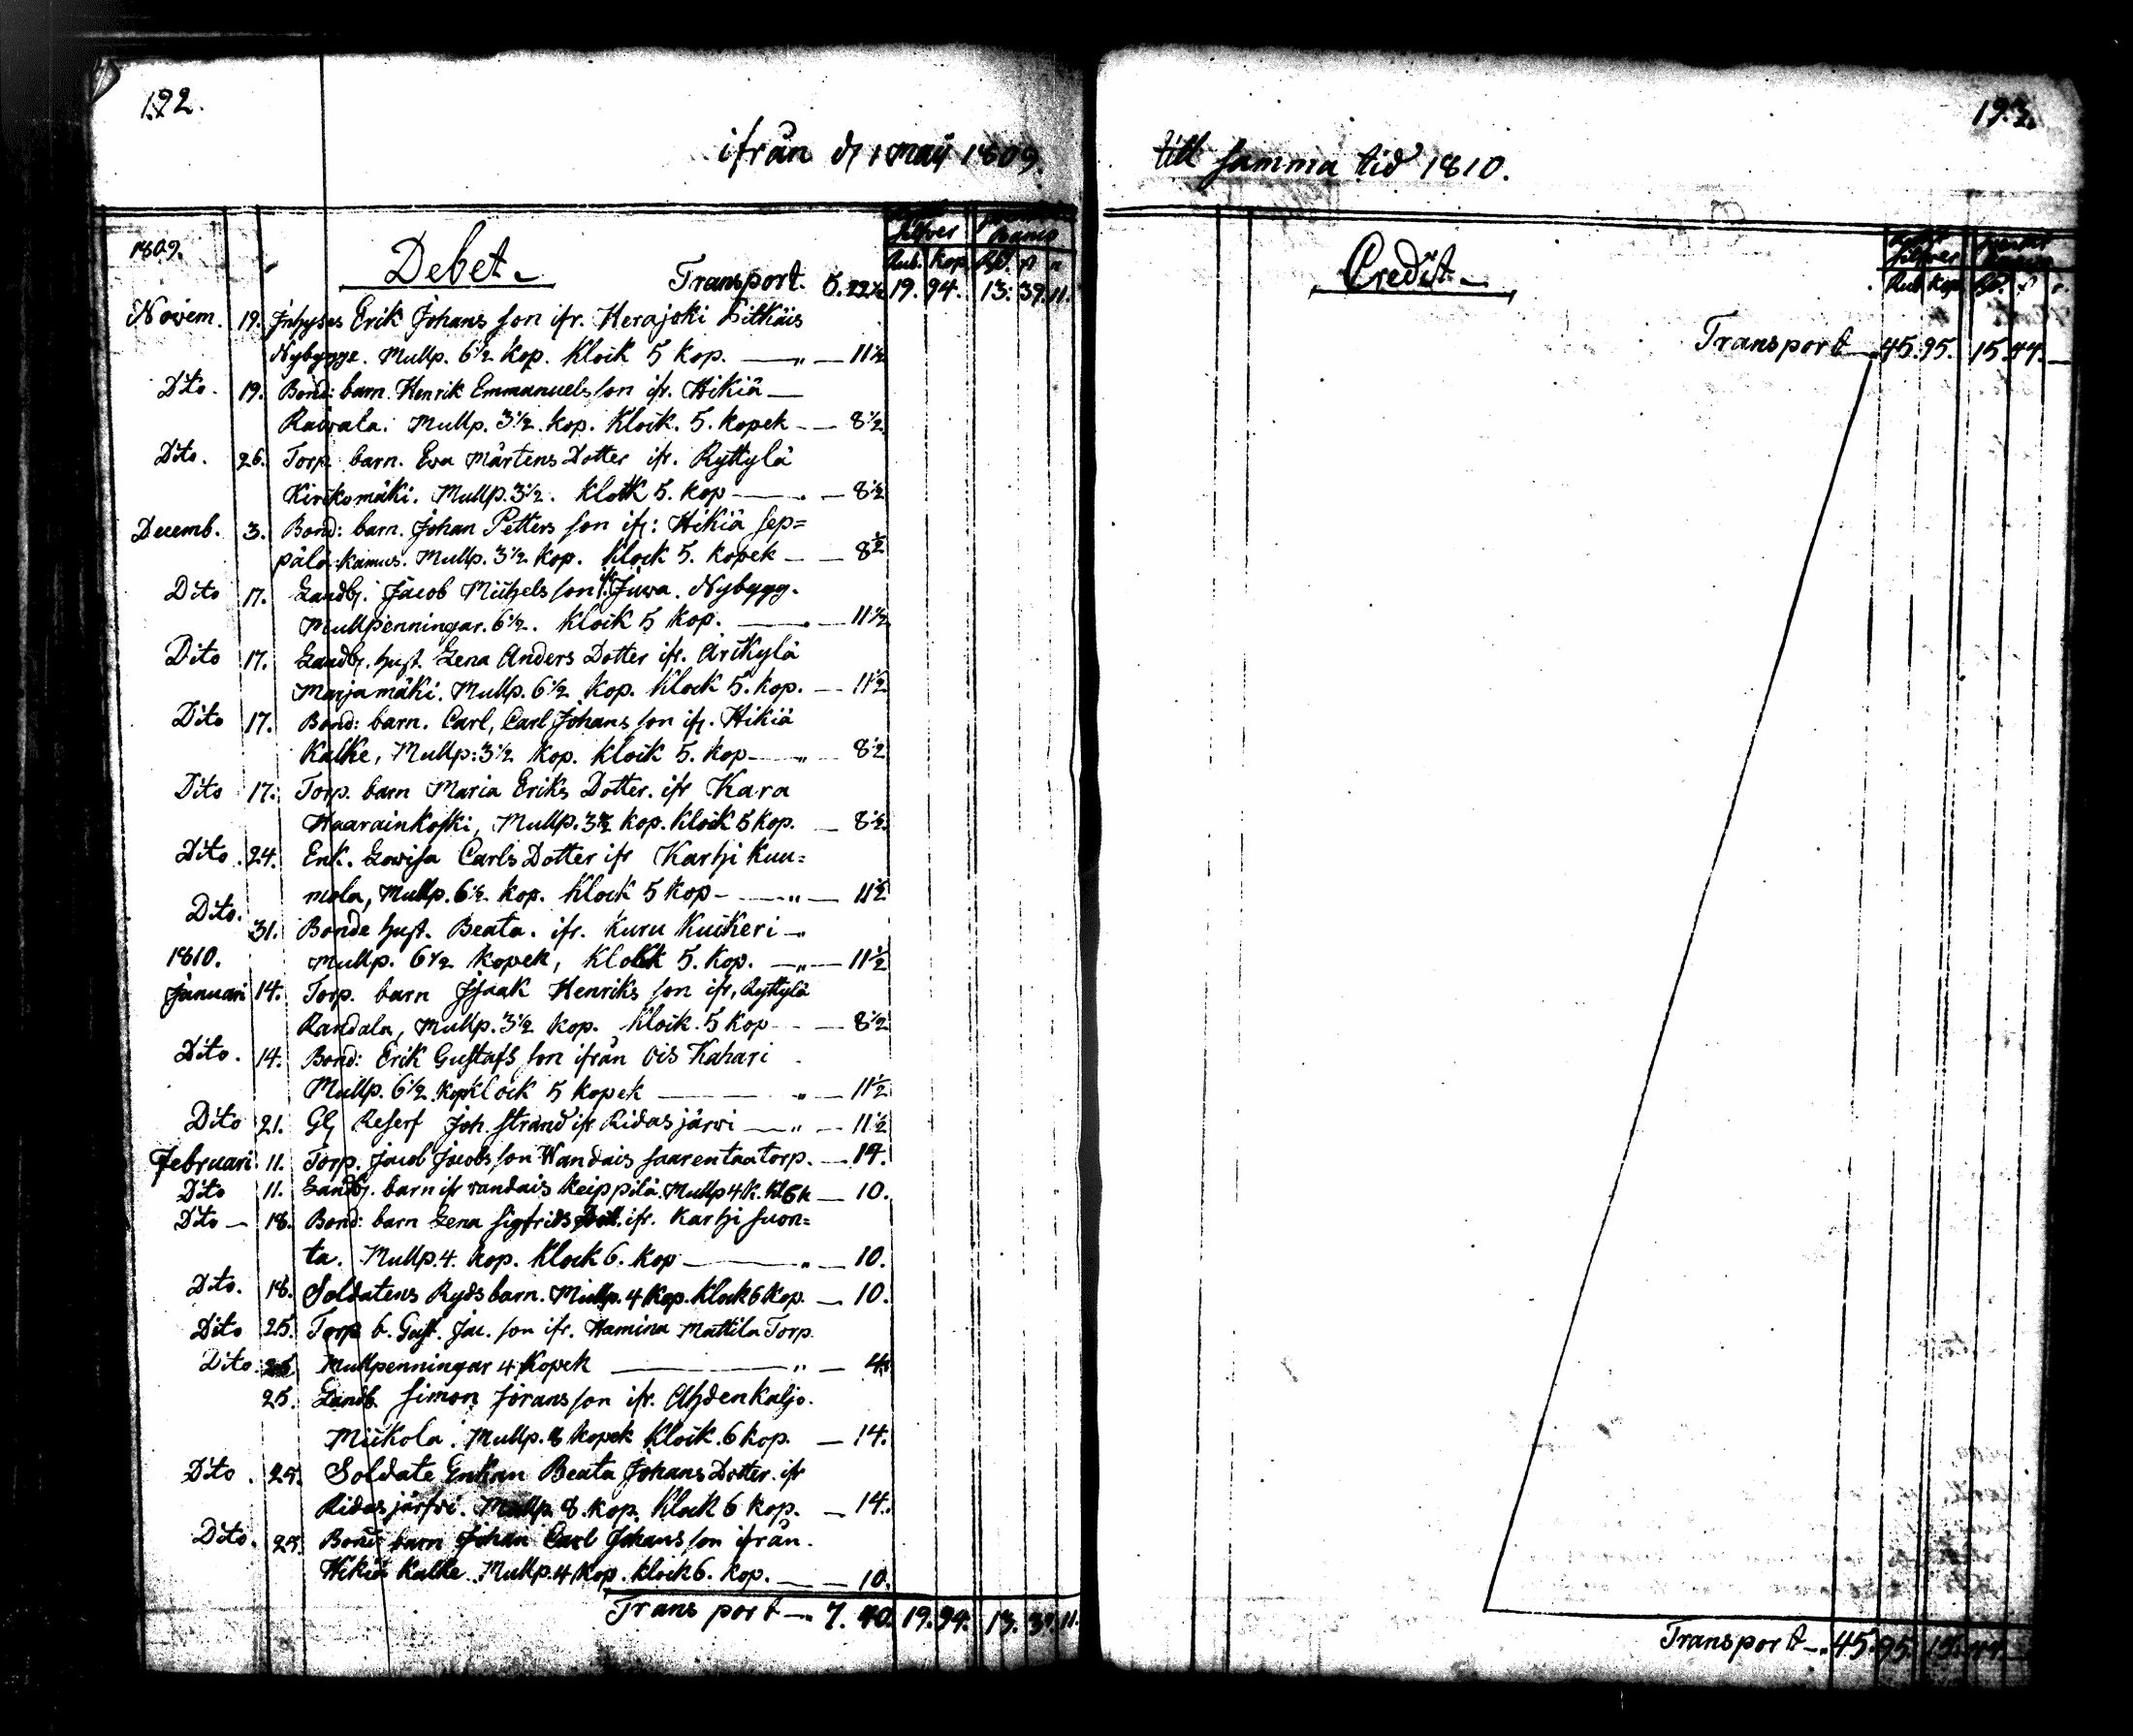 192.
ifrån d 1 Maij 1809.
1809.
Debet.
Silfver
Banco
Rub. Kop.
Transport. 5.22½ 19.94. 13:39.11.
Novem. 19. Inhyses Erik Johans son ifr. Herajoki Pitkäis
Nybygge. Mullp. 6½ Kop. Klock 5 Kop. — " — 11½
Dito. 19. Bond: barn. Henrik Emmanuels son ifr. Hikiä —
Rawala. Mullp. 3½ kop. Klock. 5. kopek — — 8½
Dito. 26. Torp. barn. Eva Mårtens Dotter ifr. Ryttylä
Kirikomäki. Mullp. 3½. Klock 5. Kop — . — 8½
Decemb. 3. Bond: barn. Johan Petters son ifr: Hikiä Sep=
pälä Kamus. Mullp. 3½ Kop. Klock 5. Kopek — — 8½
Dito 17. Landb. Jacob Michels son ifr. Juwa. Nybygg.
Mullpenningar. 6½. Klock 5 Kop. — . — 11½
Dito 17. Landb. hust. Lena Anders Dotter ifr. Arikylä
Marjamäki. Mullp. 6½ Kop. Klock 5. Kop. — 11½
Dito 17. Bond: barn. Carl, Carl Johans son ifr. Hikiä
Kalke, Mullp: 3½ Kop. Klock 5. Kop — " — 8½
Dito 17. Torp. barn Maria Eriks Dotter. ifr Kara
Haarainkoski, Mullp. 3½ Kop. Klock 5 Kop. — 8½.
Dito. 24. Enk. Lovisa Carls Dotter ifr Karhi Kuu=
mola, Mullp. 6½ Kop. Klock 5 Kop — " — 11½
Dito. 31. Bonde hust. Beata. ifr. Kuru Kuikeri —
1810. Mullp. 6½ Kopek, Klock 5. Kop. — " — 11½
Januari 14. Torp. barn Isaak Henriks son ifr. Ryttylä
Randala, Mullp. 3½ Kop. Klock. 5 Kop — — 8½
Dito. 14. Bond: Erik Gustafs son ifrån Ois Kahari
Mullp. 6½. Kop Klock 5 Kopek — " — 11½
Dito 21. Reserf Joh. Strand ifr Ridasjärwi — " — 11½
Februari. 11. Torp. Jacob Jacobs son Wandais Saarentaa torp. — 14.
Dito 11. Landb. barn ifr Wandais Keippilä. Mullp 4 K. Kl 6 k — 10.
Dito — 18. Bond: barn Lena Sigfrids Dott. ifr. Karhi Suon=
ta. Mullp. 4. Kop. Klock 6. Kop — " — 10.
Dito. 18. Soldatens Ryds barn. Mullp. 4 Kop. Klock 6 Kop. — 10.
Dito 25. Torp b. Gust. Jac. son ifr. Hamina Mattila Torp.
Dito Mullpenningar 4 Kopek — " — 4.
25. Landb. Simon Jörans son ifr. Ahdenkaljo.
Mickola. Mullp. 8 Kopek Klock. 6 Kop. — 14.
Dito. 25. Soldate Enkan Beata Johans Dotter. ifr
Ridasjärfvi. Mullp. 8. Kop. Klock 6 Kop. — 14.
Dito. 25. Bond barn Johan Carl Johans son ifrån.
Hikiä Kalke. Mullp. 4 Kop. Klock 6. Kop. — — 10.
Transport — 7. 40. 19.94. 13. 39. 11.
193.
till samma tid 1810.
Credit —
Silfver
Rub Kop.
Transport — 45.95. 15.44. —
Transport — . 45. 95. 15. 44. —